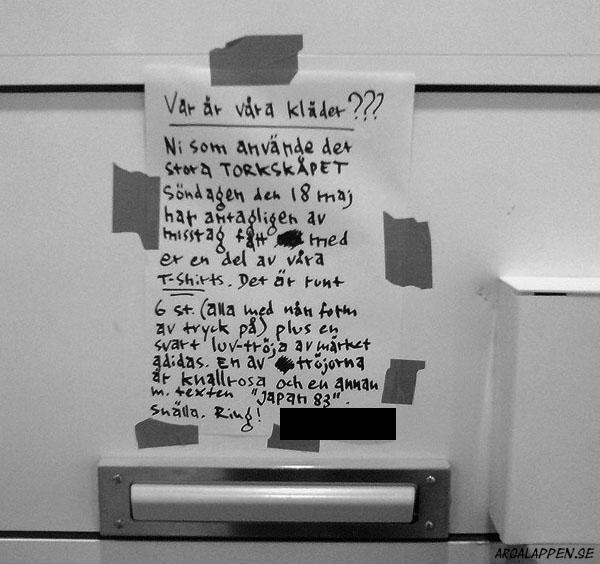 Var är våra kläder???
Ni som använde det
stora TORKSKÅPET
Söndagen den 18 maj
har antagligen av
misstag fått med
er en del av våra
T-shirts. Det är runt
6 st. (alla med nån form
av tryck på) plus en
svart luv-tröja av märket
adidas. En av tröjorna
är knallrosa och en annan
m. texten "Japan 83".
Snälla. Ring!
ARGALAPPEN.SE